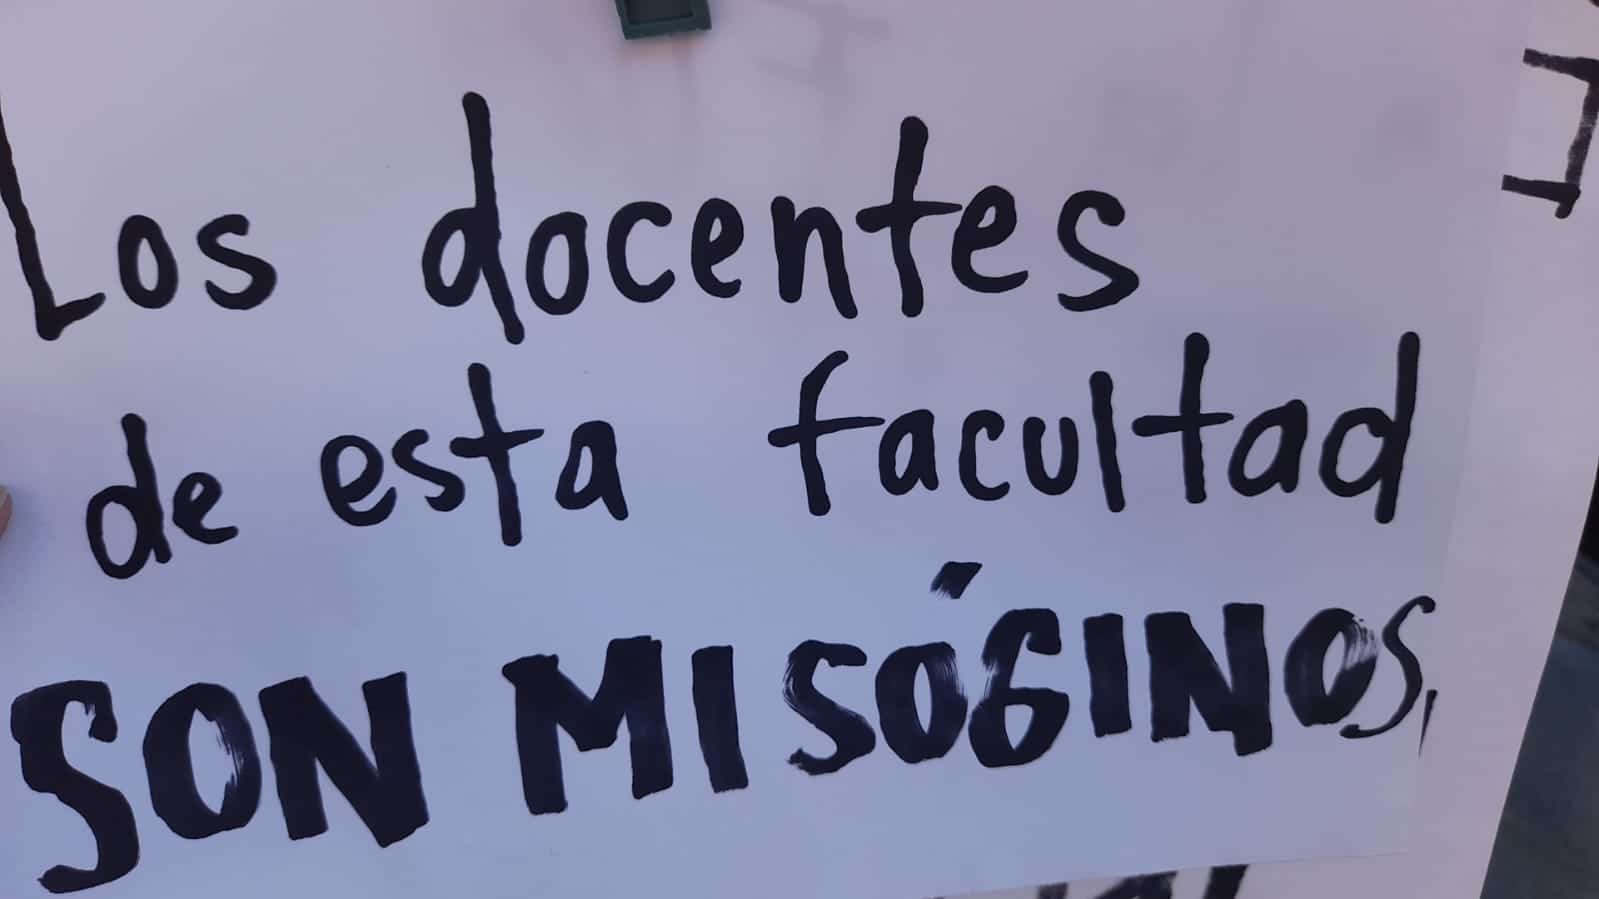 Los docentes
de esta facultad
SON MISÓGINOS,